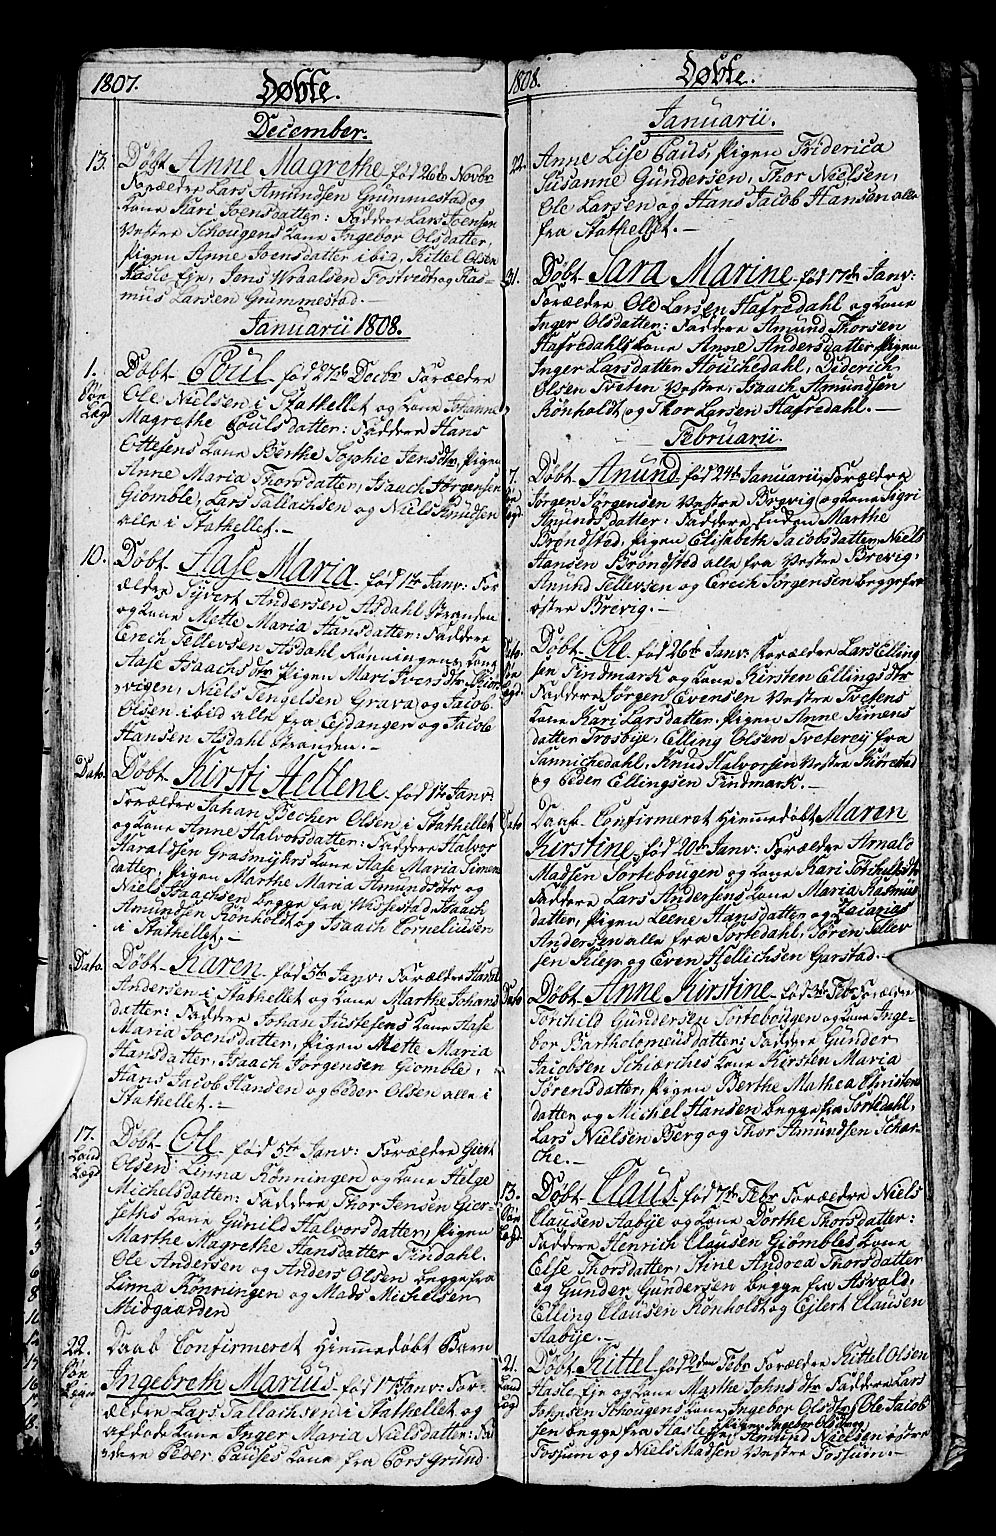 1807.
Døbte.
December.
13. Døbt Anne Magrethe fød 26de Novbr
Forældre Lars Amundsen Grummestad og
Kone Kari Joensdatter: Faddere Lars Joensen
Vestre Schougens Kone Ingebor Olsdatter,
Pigen Anne Joensdatter ibid, Kittel Olsen
Hasle Eje, Jens Wraalsen Fostvedt og Ras-
mus Larsen Grummestad.
Januarii 1808.
1. Døbt Poul fød 27de Decbr Forældre
Ole Nielsen i Stathellet og Kone Johanne
Magrethe Poulsdatter: Faddere Hans
Ottesens Kone Berthe Sophie Jensdtr, Pigen
Anne Maria Thorsdatter, Isaach Jørgensen
Giømble, Lars Tallachsen og Niels Knudsen
alle i Stathellet.
10. Døbt Aase Maria fød 1ste Janv: For
ældre Syvert Andersen Asdahl Stranden
og Kone Mette Maria Hansdatter: Faddere
Erech Tellevsen Asdahl Rønningens Kone
Aase Isaachsdtr Pigen Mari Iversdtr Skiørs
vigen, Niels Tengelsen Grava og Jacob
Olsen ibid alle fra Ejdanger og Jacob
Hansen Asdahl Stranden.
Dato. Døbt Kirsti Hellene fød 1ste Janv:
Forældre Johan Becher Olsen i Stathellet
og Kone Anne Halvorsdatter: Faddere Halvor
Haraldsen Grasmyhrs Kone Aase Maria Simons
datter, Pigen Marthe Maria Amundsdtr og
Niels Isaachsen begge fra Wissestad, Isaach
Amundsen Rønholdt og Isaach Corneliusen
i Stathellet.
Dato. Døbt Karen fød 5te Janv: Forældre
Andersen i Stathellet og Kone Marthe Johans
datter: Faddere Johan Justesens Kone Aase
Maria Joensdatter, Pigen Mette Maria
Hansdatter, Isaach Jørgensen Giømble,
Hans Jacob Hansen og Peder Olsen alle i
Stathellet.
17. Døbt Ole fød 5te Janv: Forældre Giert
Olsen Linna Rønningen og Kone Helge
Michelsdatter: Faddere Thor Jensen Gier-
seths Kone Gunild Halvorsdatter, Pigen
Marthe Magrethe Hansdatter Findahl
Ole Andersen og Anders Olsen begge fra
Linna Rønningen og Mads Michelsen
Midgaarden
22. Daab Confirmeret Hiemmedøbt Barn
Ingebreth Marius fød 17de Janv: For-
ældre Lars Tallachsen i Stathellet og
afdøde Kone Inger Maria Nielsdatter: Fad
dere Peder Pauses Kone fra Porsgrund
1808.
Døbte.
Januarii.
22. Anne Lise Paus, Pigen Friderica
Susanne Gundersen, Thor Nielsen,
Ole Larsen og Hans Jacob Hansen alle
fra Stathellet.
31. Døbt Sara Marine fød 17de Janv:
Forældre Ole Larsen Hafredahl og Kone
Inger Olsdatter: Faddere Amund Thorsen
Hafredahls Kone Anne Andersdatter, Pigen
Inger Larsdatter Houchedahl, Diderich
Olsen Tveten Vestre, Isaach Amundsen
Rønholdt og Thor Larsen Hafredahl.
Februarii.
7. Døbt Anund fød 24de Januarii, Forældre
Jørgen Jørgensen Vestre Brevig og Kone Sigri
Anundsdatter: Faddere Enken Marthe
Brøndstad, Pigen Elisabeth Jacobsdatter, Niels
Hansen Brøndstad alle fra Vestre Brevig,
Anund Tellevsen og Erech Jørgensen begge fra
østre Brevig.
Dato. Døbt Ole fød 26de Janv: Forældre Lars Elling
sen Findmark og Kone Kirsten Ellingsdtr
Faddere Jørgen Evensen Vestre Tvetens
Kone Kari Larsdatter, Pigen Anne Simens
datter Trosbije, Elling Olsen Svetereij fra
Sannichedahl, Knud Halvorsen Vestre Kiørstad
og Peder Ellingsen Findmark.
Dato Daab Confirmeret Hiemmedøbt Maren
Kirstine, fød 20de Janv: Forældre Arnald
Madsen Tortebougen og Kone Kari Torchelsdtr
Faddere Lars Andersens Kone Maria Rasmus
datter, Pigen Leene Hansdatter og Zacarias
Andersen alle fra Tortedahl, Søren Tellev
sen Kleje og Even Hellichsen Garstad.
Dato Døbt Anne Kirstine fød 3de Febr Forældre
Torchild Gundersen Tortebougen og Kone Inge-
bor Bartholomeusdatter: Faddere Gunder
Jacobsen Schiærches Kone Kirsten Maria
Sørensdatter, Pigen Berthe Mathea Christens
datter og Michel Hansen begge fra Tortedahl,
Lars Nielsen Berg og Thor Amundsen Schær-
che.
13. Døbt Claus fød 7de Febr Forældre Niels
Clausen Aabije og Kone Dorthe Thorsdatter:
Faddere Henrich Clausen Giømbles Kone
Else Thorsdatter, Aine Andrea Thorsdatter
og Gunder Gundersen begge fra Asvald,
Elling Clausen Rønholdt og Ejlert Clausen
Aabije.
21. Døbt Kittel fød 2den Febr Forældre Kittel Olsen
Hasle Eje og Kone Marthe Johnsdtr Faddere Lars
Johnsen Schougens Kone Ingebor Olsdtr, Ole Jacob
sen begge fra Hasle, Pigen Ingebor Olsdtr, Amund Nielsen østre
Fossum og Niels Madsen Vestre Fossum.